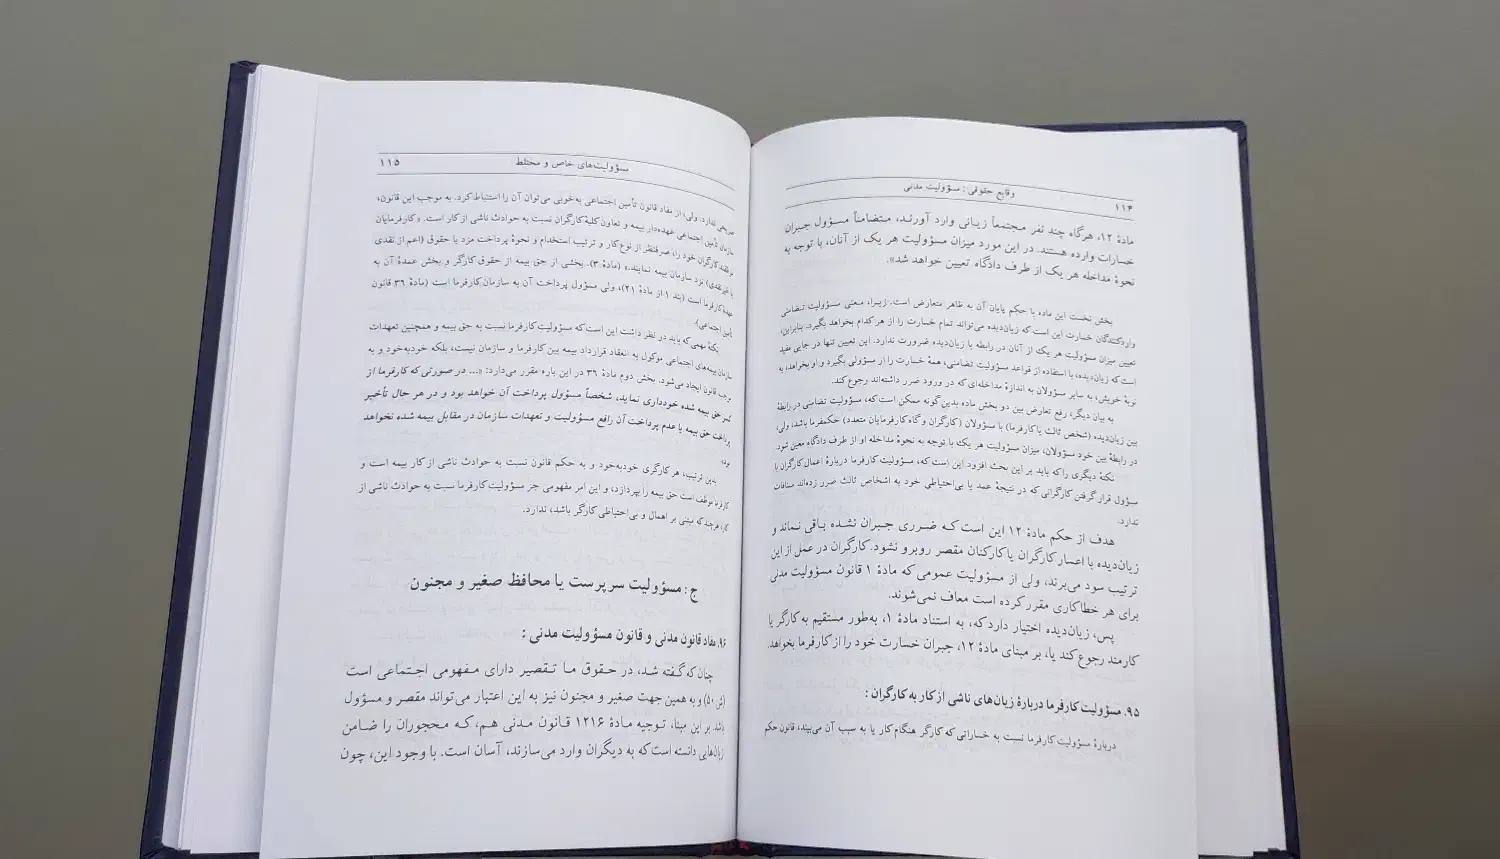 ۱۱۴
وقایع حقوقی: مسؤولیت مدنی
مادهٔ ۱۲، هرگاه چند نفر مجتمعاً زیانی وارد آورند، متضامناً مسؤول جبران
خسارات وارده هستند. در این مورد میزان مسؤولیت هر یک از آنان، با توجه به
نحوهٔ مداخله هر یک از طرف دادگاه تعیین خواهد شد».
بخش نخست این ماده با حکم پایان آن به ظاهر متعارض است. زیرا، معنی مسؤولیت تضامنی
واردکنندگان خسارت این است که زیان‌دیده می‌تواند تمام خسارت را از هر کدام بخواهد بگیرد. بنابراین،
تعیین میزان مسؤولیت هر یک از آنان در رابطه با زیان‌دیده ضرورت ندارد. این تعیین تنها در جایی مفید
است که زیان‌دیده، با استفاده از قواعد مسؤولیت تضامنی، همهٔ خسارت را از مسؤولی بگیرد و او بخواهد، به
نوبهٔ خویش، به سایر مسؤولان به اندازهٔ مداخله‌ای که در ورود ضرر داشته‌اند رجوع کند.
به بیان دیگر، رفع تعارض بین دو بخش ماده بدین‌گونه ممکن است که، مسؤولیت تضامنی در رابطهٔ
بین زیان‌دیده (شخص ثالث یا کارفرما) با مسؤولان (کارگران و گاه کارفرمایان متعدد) حکمفرما باشد، ولی،
در رابطهٔ بین خود مسؤولان، میزان مسؤولیت هر یک با توجه به نحوهٔ مداخله او از طرف دادگاه معین شود.
نکتهٔ دیگری را که باید بر این بحث افزود این است که، مسؤولیت کارفرما دربارهٔ اعمال کارگران با
مسؤول قرار گرفتن کارگرانی که در نتیجهٔ عمد یا بی‌احتیاطی خود به اشخاص ثالث ضرر زده‌اند منافات
ندارد.
هدف از حکم مادهٔ ۱۲ این است که ضرری جبران نشده باقی نماند و
زیان‌دیده با اعسار کارگران یا کارکنان مقصر روبرو نشود. کارگران در عمل از این
ترتیب سود می‌برند، ولی از مسؤولیت عمومی که مادهٔ ۱ قانون مسؤولیت مدنی
برای هر خطاکاری مقرر کرده است معاف نمی‌شوند.
پس، زیان‌دیده اختیار دارد که، به استناد مادهٔ ۱، به‌طور مستقیم به کارگر یا
کارمند رجوع کند یا، بر مبنای مادهٔ ۱۲، جبران خسارت خود را از کارفرما بخواهد.
۹۵. مسؤولیت کارفرما دربارهٔ زیان‌های ناشی از کار به کارگران:
دربارهٔ مسؤولیت کارفرما نسبت به خساراتی که کارگر هنگام کار یا به سبب آن می‌بیند، قانون حکم
مسؤولیت‌های خاص و مختلط
۱۱۵
صریحی ندارد. ولی، از مفاد قانون تأمین اجتماعی به‌خوبی می‌توان آن را استنباط کرد. به موجب این قانون،
سازمان تأمین اجتماعی عهده‌دار بیمه و تعاون کلیهٔ کارگران نسبت به حوادث ناشی از کار است. و کارفرمایان
موظفند کارگران خود را، صرفنظر از نوع کار و ترتیب استخدام و نحوهٔ پرداخت مزد یا حقوق (اعم از نقدی
یا غیرنقدی) نزد سازمان بیمه نمایند.» (مادهٔ ۳). بخشی از حق بیمه از حقوق کارگر و بخش عمدهٔ آن به
عهدهٔ کارفرما است (بند ۱ از مادهٔ ۲۱)، ولی مسؤول پرداخت آن به سازمان کارفرما است (مادهٔ ۳۶ قانون
تأمین اجتماعی).
نکتهٔ مهمی که باید در نظر داشت این است که مسؤولیت کارفرما نسبت به حق بیمه و همچنین تعهدات
سازمان بیمه‌های اجتماعی موکول به انعقاد قرارداد بیمه بین کارفرما و سازمان نیست، بلکه خودبه‌خود و به
موجب قانون ایجاد می‌شود. بخش دوم مادهٔ ۳۶ در این باره مقرر می‌دارد: «... در صورتی که کارفرما از
کسر حق بیمه شده خودداری نماید، شخصاً مسؤول پرداخت آن خواهد بود و در هر حال تأخیر
پرداخت حق بیمه یا عدم پرداخت آن رافع مسؤولیت و تعهدات سازمان در مقابل بیمه شده نخواهد
بود».
بدین ترتیب، هر کارگری خودبه‌خود و به حکم قانون نسبت به حوادث ناشی از کار بیمه است و
کارفرما موظف است حق بیمه را بپردازد، و این امر مفهومی جز مسؤولیت کارفرما نسبت به حوادث ناشی از
کار، هرچند که مبتنی بر اهمال و بی‌احتیاطی کارگر باشد، ندارد.
ج: مسؤولیت سرپرست یا محافظ صغیر و مجنون
۹۶. مفاد قانون مدنی و قانون مسؤولیت مدنی:
چنان که گفته شد، در حقوق ما تقصیر دارای مفهومی اجتماعی است
(ش ۵۰) و به همین جهت صغیر و مجنون نیز به این اعتبار می‌تواند مقصر و مسؤول
باشد. بر این مبنا، توجیه مادهٔ ۱۲۱۶ قانون مدنی هم، که محجوران را ضامن
زیان‌هایی دانسته است که به دیگران وارد می‌سازند، آسان است. با وجود این، چون